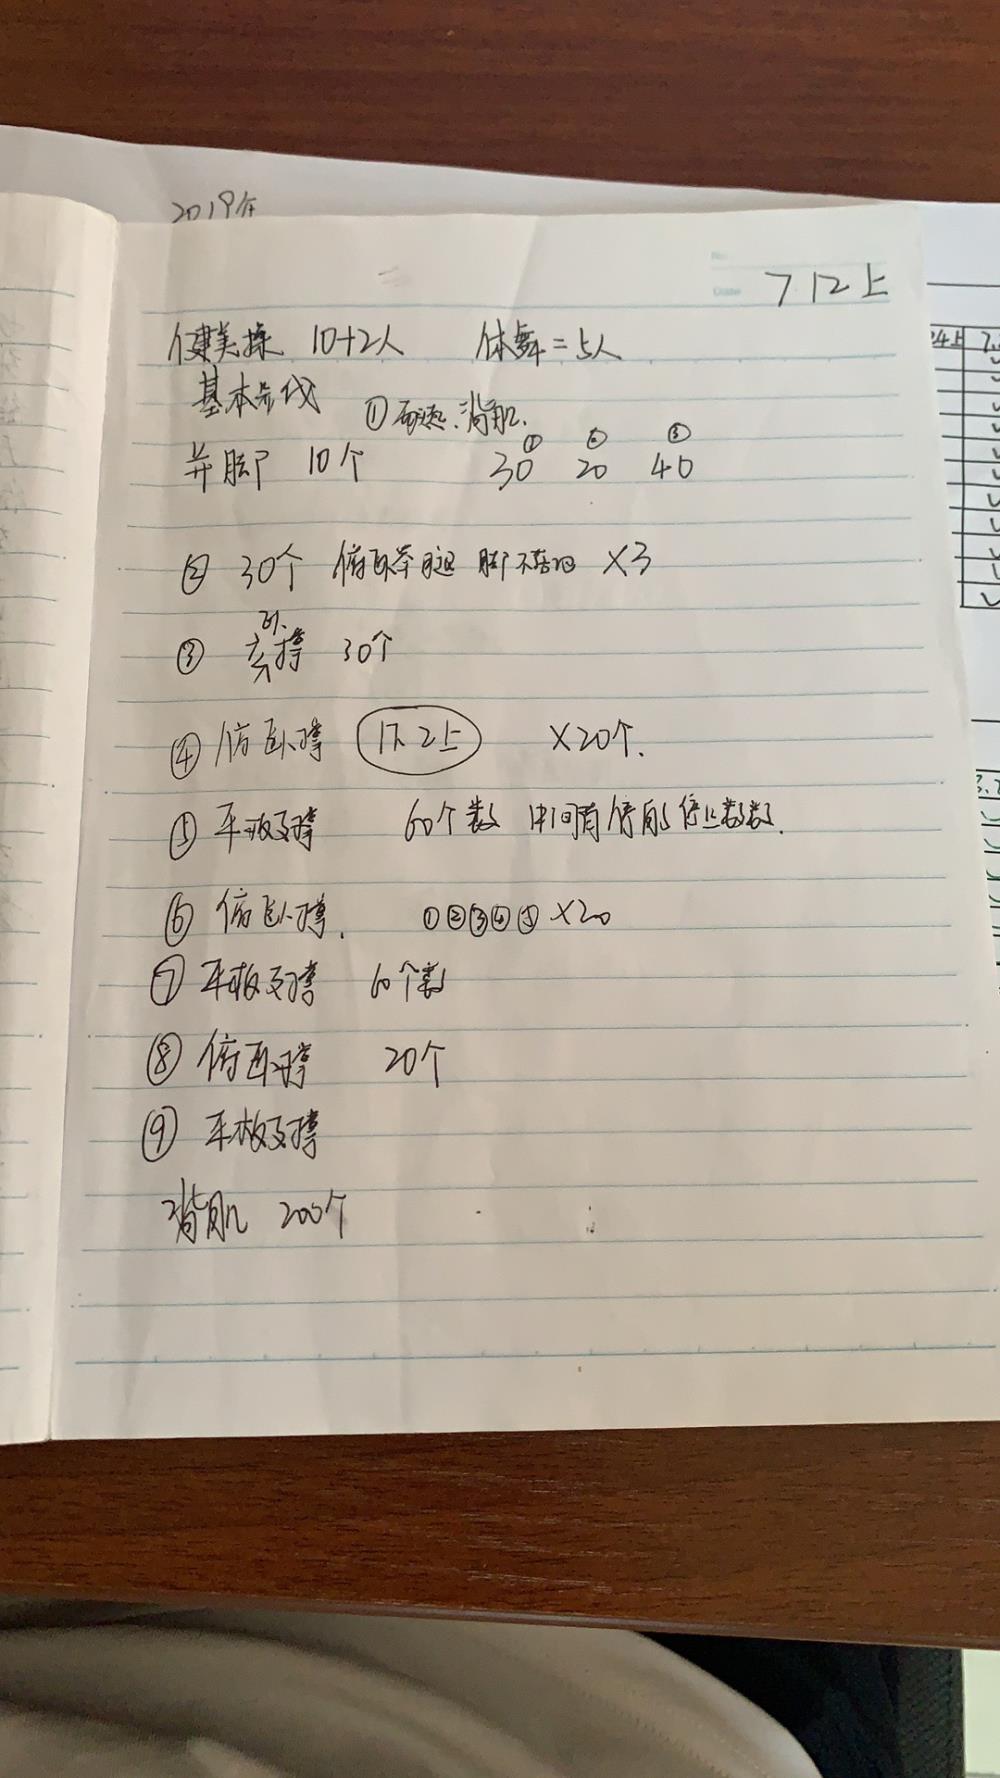 2019年
7 12上
健美操 10+2人 体舞=5人
基本步伐
① 背肌.
并脚 10个 30① 20② 40③
② 30个 俯卧举腿 脚不落地 ×3
③ 撑 30个
④ 俯卧撑 1下2上 ×20个.
⑤ 平板支撑 60个数 中间有停的停止数数.
⑥ 俯卧撑. ①②③④⑤×20
⑦ 平板支撑 60个数
⑧ 俯卧撑 20个
⑨ 平板支撑
背肌 200个